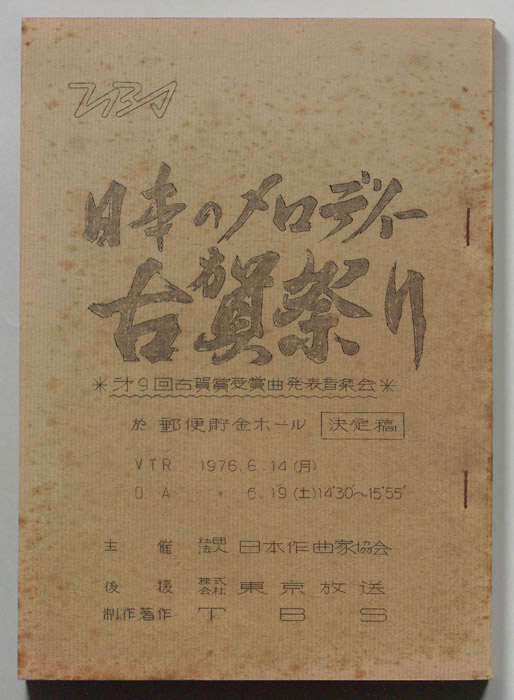 TBS
日本のメロディー
古賀祭り
＊才9回古賀賞受賞曲発表音楽会＊
於 郵便貯金ホール 決定稿
VTR 1976.6.14(月)
OA 〃 6.19(土)14°30'～15°55'
主催 社団法人 日本作曲家協会
後援 株式会社 東京放送
制作著作 TBS